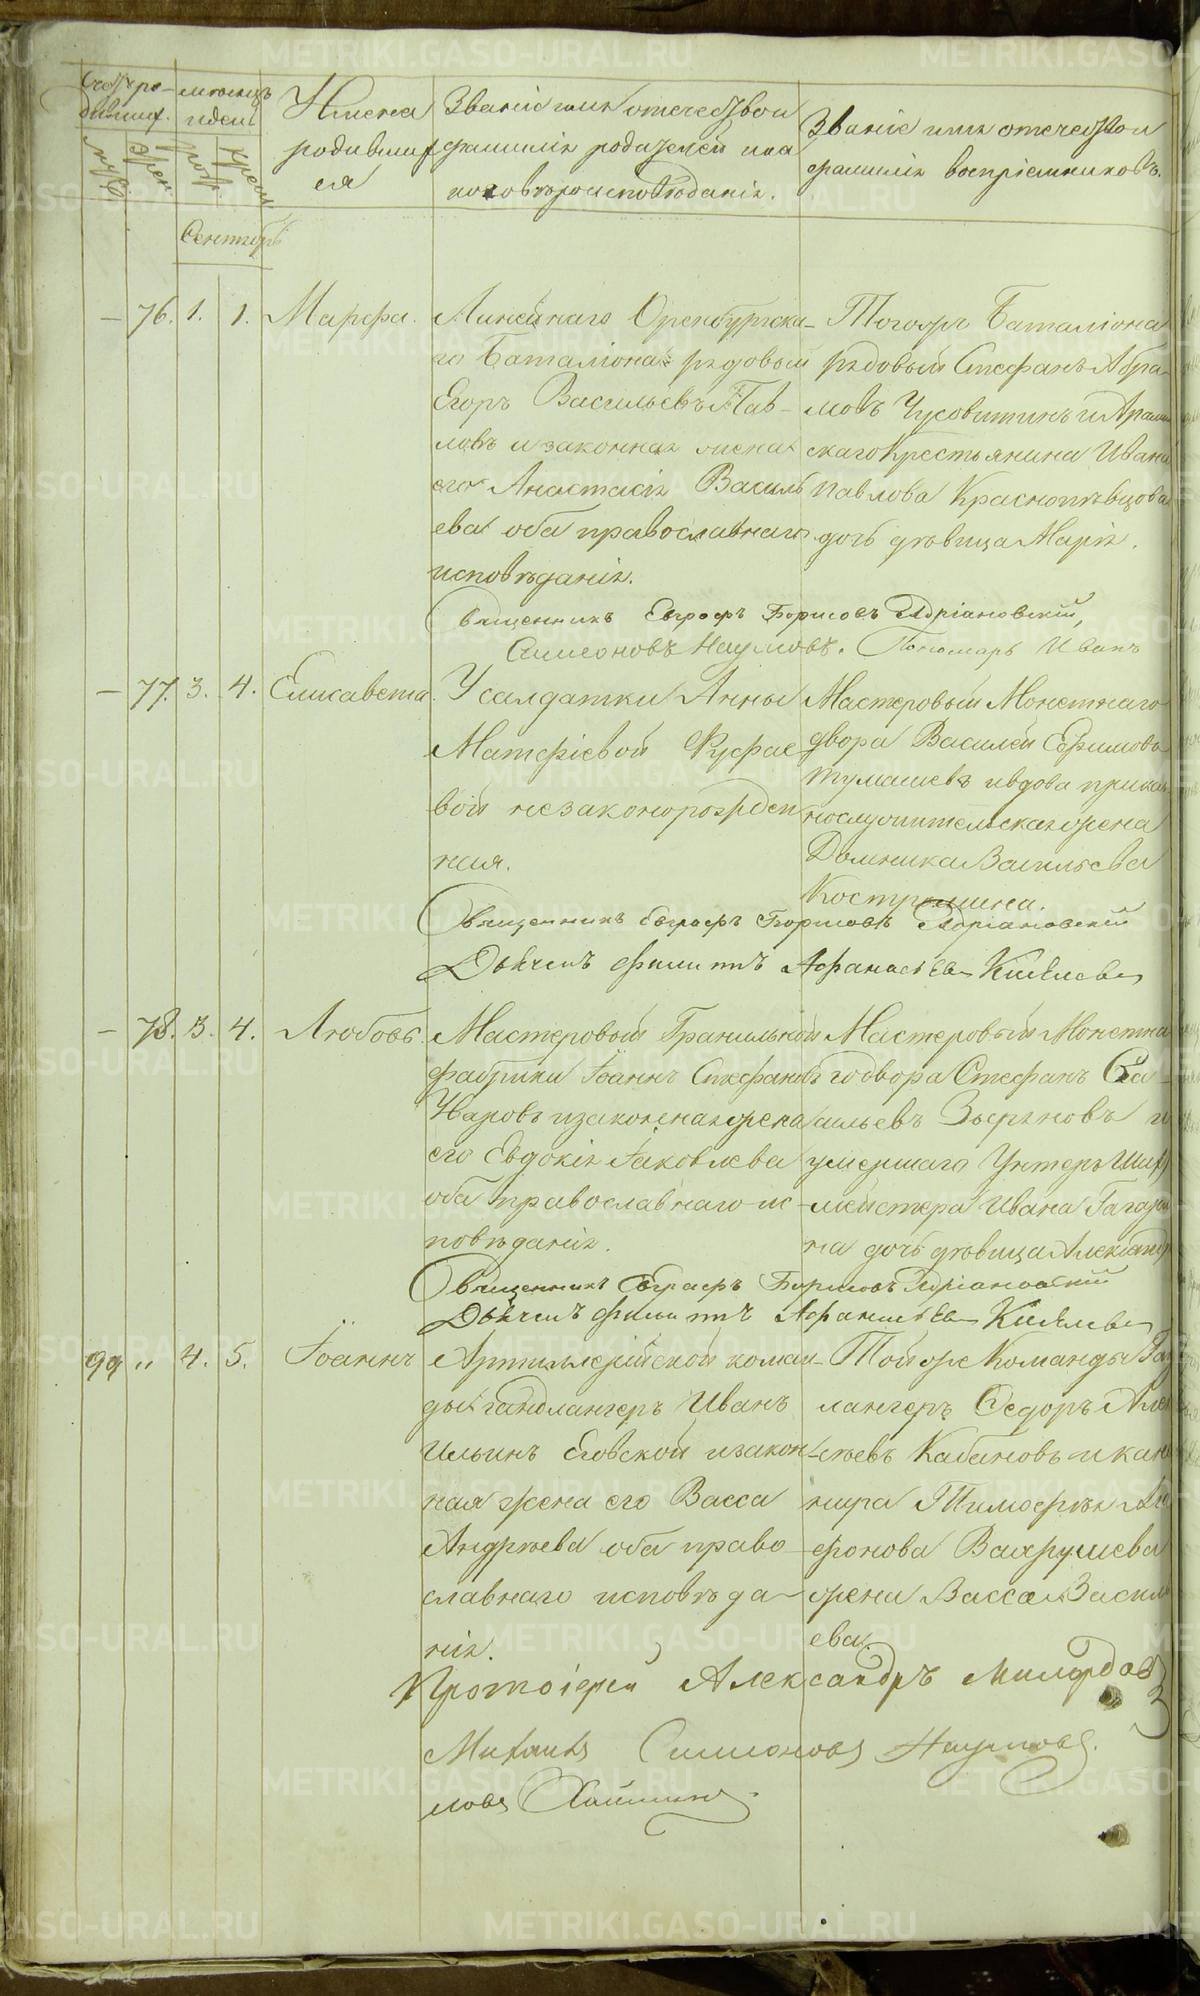 Счетъ ро-
дившихся.
муж.
жен.
мѣсяцъ
и день
рожд.
крещ.
Имена
родивших
ся
Званіе имя отечество и
фамилія родителей и ка
кого вѣроисповѣданія.
Званіе имя отечество и
фамилія воспріемниковъ.
Сентябрь
— 76. 1. 1. Марфа.
Линейнаго Оренбургска-
го Баталіона рядовый
Егоръ Васильевъ Пав-
ловъ и законная жена
его Анастасія Василь
ева оба православнаго
исповѣданія.
Тогожъ Баталіона
рядовый Стефанъ Абра-
мовъ Чусовитинъ и Арамил
скаго Крестьянина Ивана
Павлова Краснопѣвцова
дочь дѣвица Марія.
Священникъ Евграфъ Борисовъ Адріановскій,
Симеоновъ Наумовъ. Пономарь Иванъ
— 77. 3. 4. Елисавета.
У салдатки Анны
Матфіевой Фусфае
вой незаконорожден
ная.
Мастеровый Монетнаго
двора Василей Ефимовъ
Тумашевъ и вдова приказ
нослужительская жена
Домника Васильева
Костромина.
Священникъ Евграфъ Борисовъ Адріановскій
Дьячекъ Филиппъ Афанасьевъ Киселевъ
— 78. 3. 4. Любовь.
Мастеровой Гранильной
фабрики Іоаннъ Стефановъ
Уваровъ и законная жена
его Евдокія Іаковлева
оба православнаго ис-
повѣданія.
Мастеровый Монетна
го двора Стефанъ Ва-
сильевъ Звѣревъ и
умершаго Унтеръ Ших
мейстера Ивана Гагари
на дочь дѣвица Александр
Священникъ Евграфъ Борисовъ Адріановскій
Дьячекъ Филиппъ Афанасьевъ Киселевъ
99 " 4. 5. Іоаннъ
Артиллерійской коман-
ды гандлангеръ Иванъ
Ильинъ Еговской и закон
ная жена его Васса
Андреева оба право
славнаго исповѣда-
нія.
Той же Команды Ган
лангеръ Ѳедоръ Алек
сѣевъ Кабановъ и кано
нира Тимофея Аго
фонова Вахрушева
жена Васса Василь
ева.
Протоіерей Александръ Милордовъ
Михаилъ Симеоновъ Наумовъ.
ловъ
METRIKI.GASO-URAL.RU